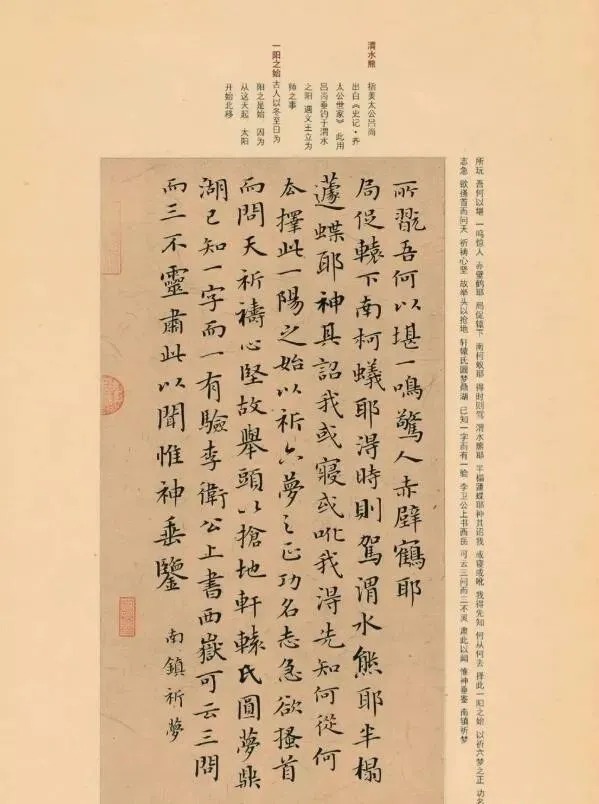 渭水熊 指姜太公吕尚
出自《史记·齐
太公世家》 此用
吕尚垂钓于渭水
之阳 遇文王立为
师之事
一阳之始 古人以冬至日为
阳之是始 因为
从这天起 太阳
开始北移
所玩 吾何以堪 一鸣惊人 赤壁鹤耶 局促辕下 南柯蚁耶 得时则驾 渭水熊耶 半榻蘧蝶耶 神其诏我 或寝或吪 我得先知 何从何去 择此一阳之始 以祈六梦之正 功名
志急 欲搔首而问天 祈祷心坚 故举头以抢地 轩辕氏圆梦鼎湖 已知一字而有一验 李卫公上书西岳 可云三问而三不灵 肃此以闻 惟神垂鉴 南镇祈梦
所翫吾何以堪一鳴驚人赤壁鶴耶
局促轅下南柯蟻耶得時則駕渭水熊耶半榻
蘧蝶耶神其詔我或寢或吪我得先知何從何
去擇此一陽之始以祈六夢之正功名志急欲搔首
而問天祈禱心堅故舉頭以搶地軒轅氏圓夢鼎
湖已知一字而一有驗李衛公上書西嶽可云三問
而三不靈肅此以聞惟神垂鑒
南鎮祈夢